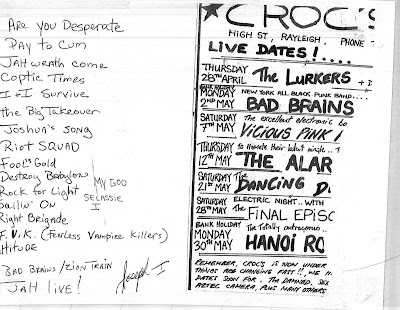 Are You Desperate
Pay to Cum
JAH wrath come
Coptic Times
I & I Survive
the Big Takeover
Joshua's Song
Riot SQUAD
Fool's Gold
Destroy Babylon
Rock for Light
Sailin' On
Right Brigade
F.V.K. (Fearless Vampire Killers)
Attitude
MY GOD
SELASSIE
I
BAD BRAINS / ZION TRAIN
JAH live!
Joseph I
CROC'S
HIGH ST, RAYLEIGH. PHONE
LIVE DATES!....
THURSDAY
28TH APRIL The LURKERS +
MONDAY NEW YORK ALL BLACK PUNK BAND...
2ND MAY BAD BRAINS
SATURDAY The excellent electronic
7TH MAY VICIOUS PINK
THURSDAY to promote their latest single..
12TH MAY THE ALAR
SATURDAY The
21ST MAY DANCING D
SATURDAY ELECTRIC NIGHT.. WITH
28TH MAY THE FINAL EPISO
BANK HOLIDAY The totally outrageous..
MONDAY
30TH MAY HANOI RO
REMEMBER, CROC'S IS NOW UNDER
THINGS ARE CHANGING FAST!!, WE
DATES SOON FOR. THE DAMNED, SEX
AZTEC CAMERA, PLUS MANY OTHERS